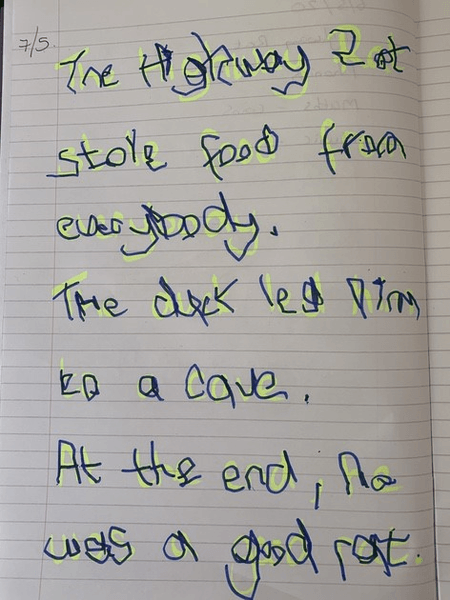 7/5.
The Highway Rat
stole food from
everybody.
The duck led him
to a cave.
At the end, he
was a good rat.